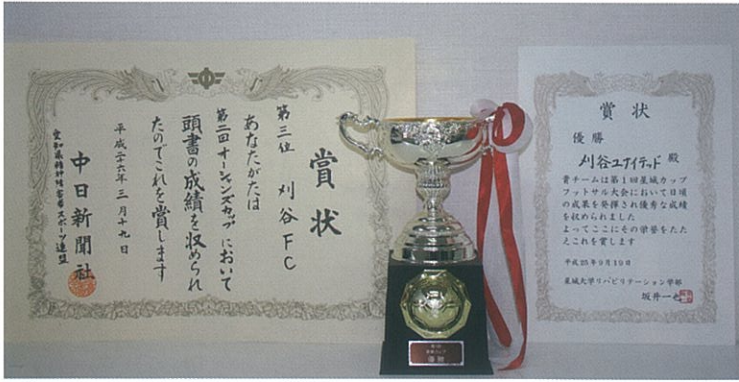 賞状
第三位　刈谷FC
あなたがたは
第二回オーシャンズカップにおいて
頭書の成績を収められ
たのでこれを賞します
平成二十六年三月十九日
愛知県精神障害者スポーツ連盟
中日新聞社
優勝
賞状
優勝
刈谷ユナイテッド 殿
貴チームは第1回星城カップ
フットサル大会において日頃
の成果を発揮され優秀な成績
を収められました
よってここにその栄誉をたた
えこれを賞します
平成25年9月19日
星城大学リハビリテーション学部
坂井一也